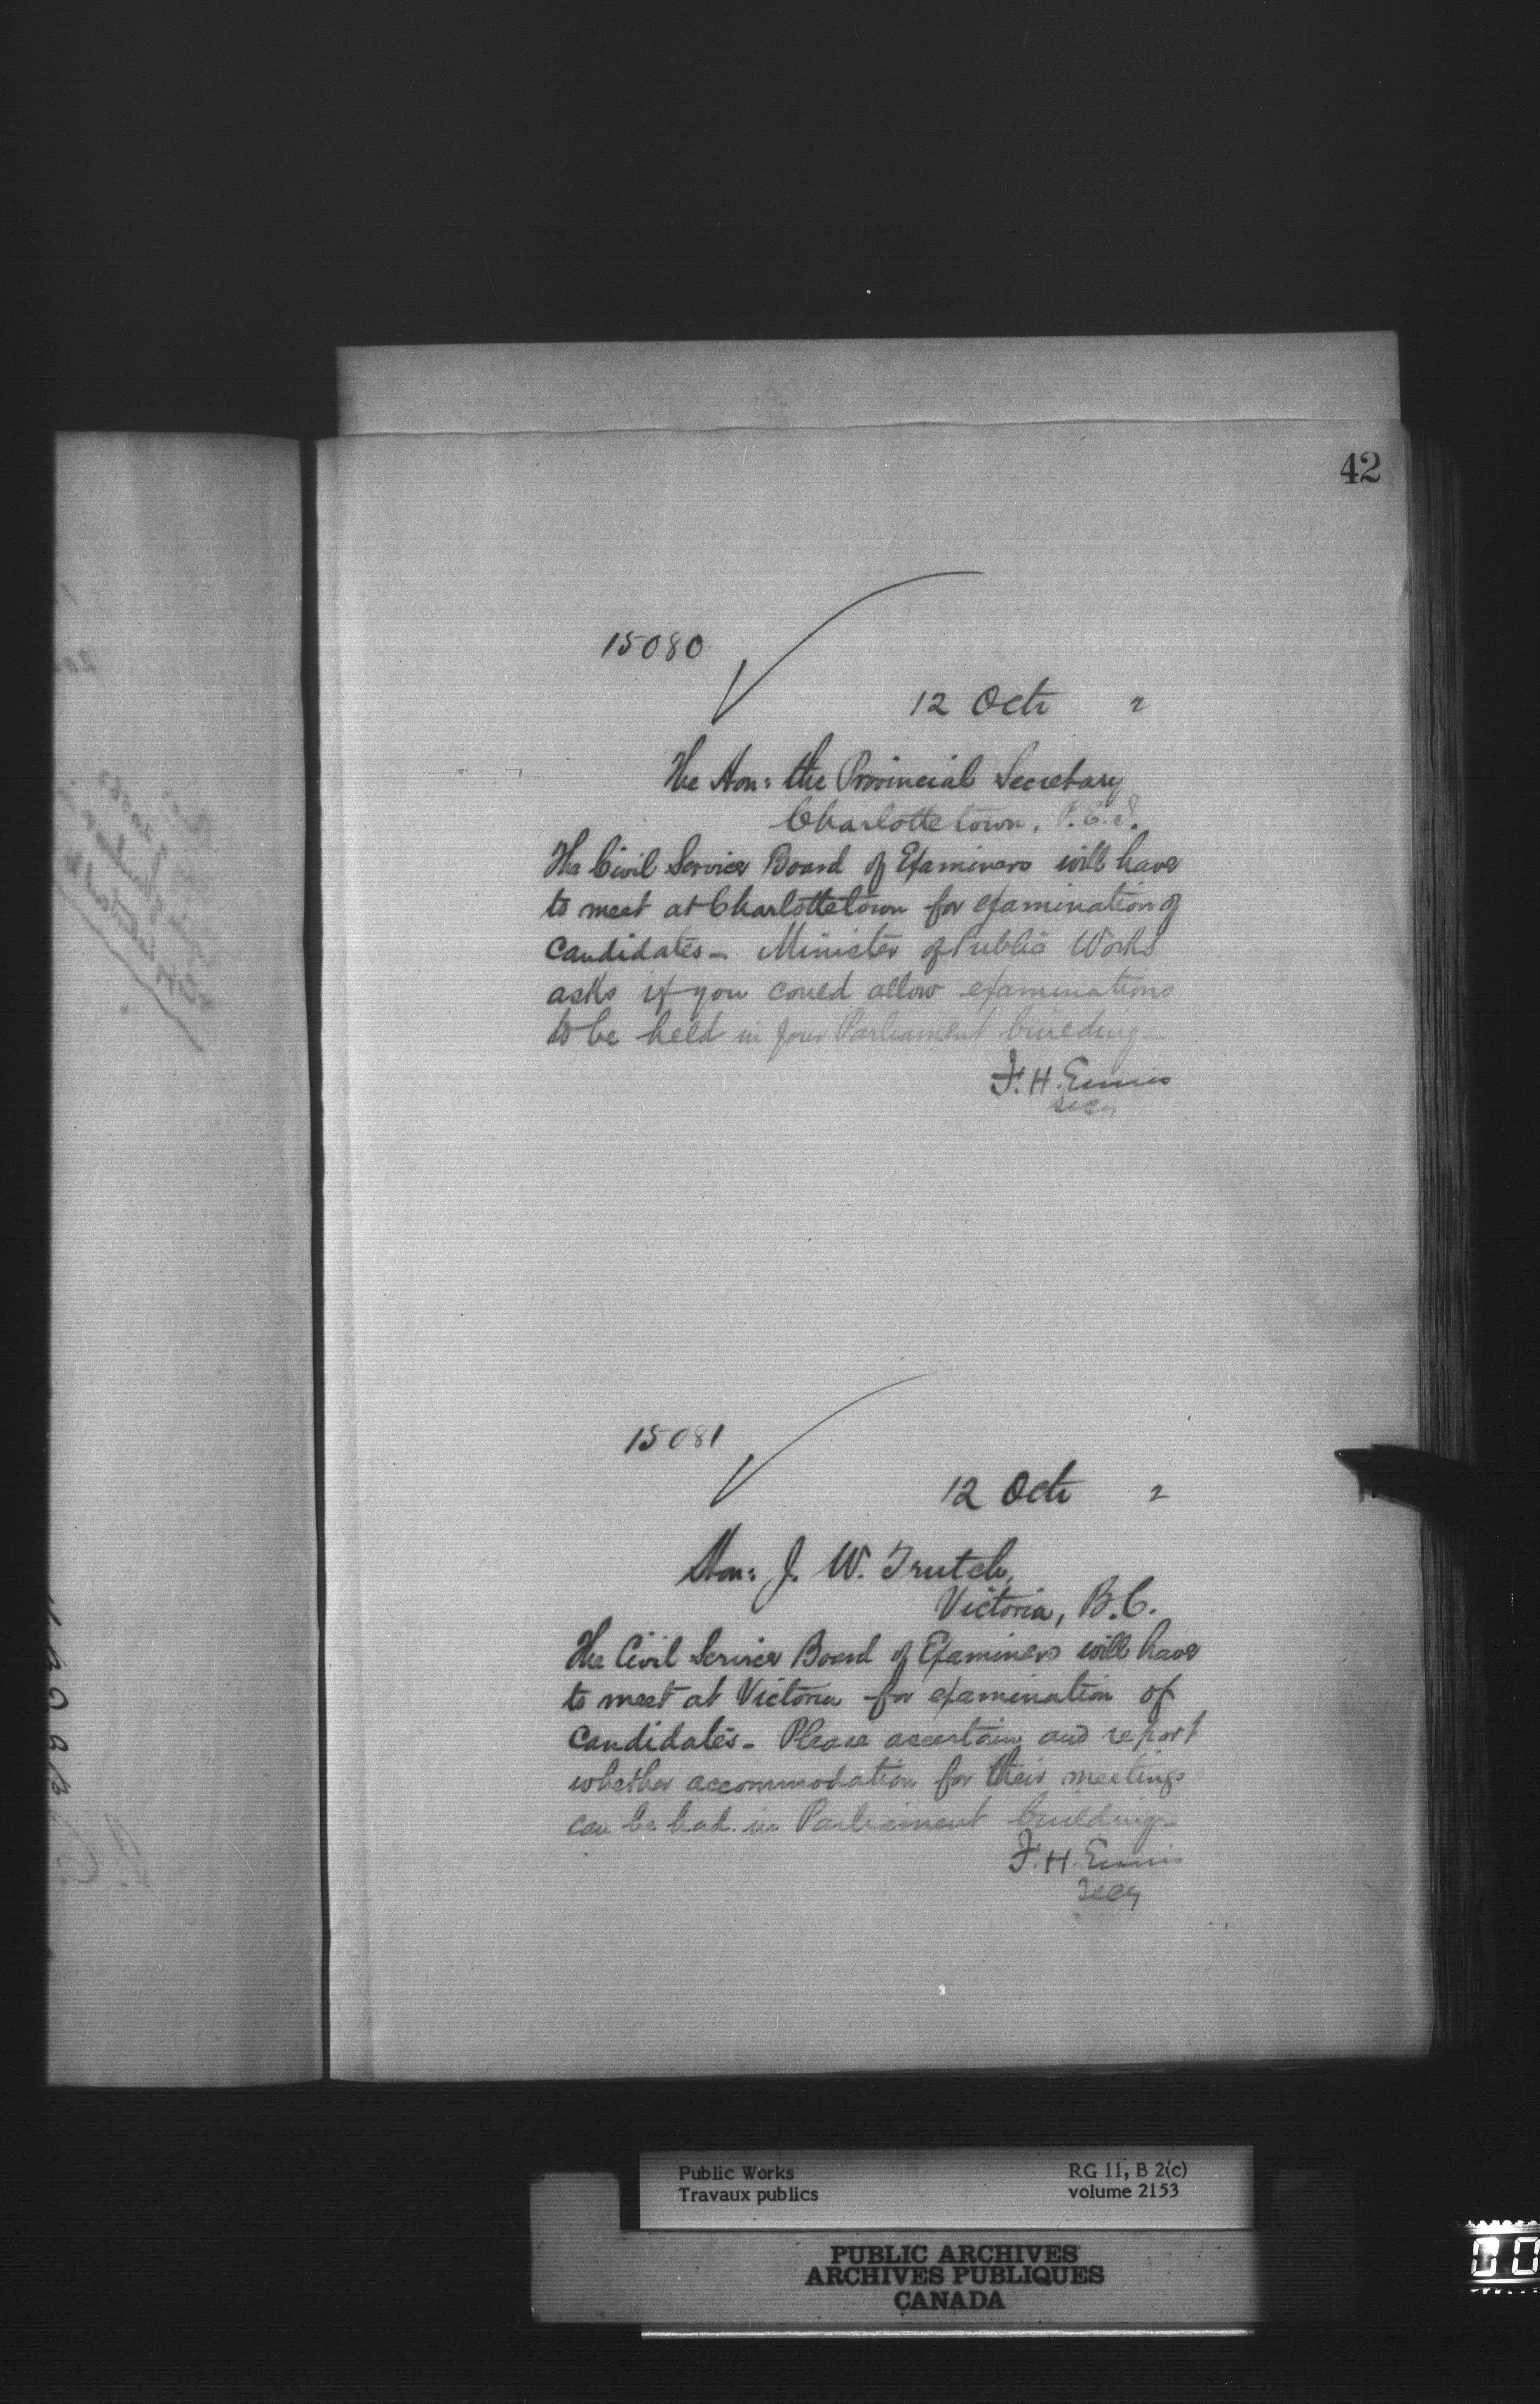 42
15080
12 Octr 2
The Hon: the Provincial Secretary
Charlottetown, P.E.I.
The Civil Service Board of Examiners will have
to meet at Charlottetown for examination of
Candidates - Minister of Public Works
asks if you could allow examinations
to be held in your Parliament building -
F. H. Ennis
Secy
15081
12 Octr 2
Hon: J. W. Trutch,
Victoria, B.C.
The Civil Service Board of Examiners will have
to meet at Victoria for examination of
Candidates - Please ascertain and report
whether accommodation for their meetings
can be had in Parliament buildings -
F. H. Ennis
Secy
Public Works RG 11, B 2(c)
Travaux publics volume 2153
PUBLIC ARCHIVES
ARCHIVES PUBLIQUES
CANADA